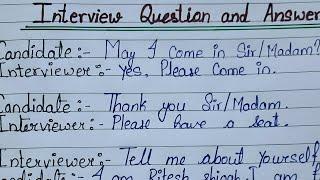 Interview Question and Answer
Candidate:- May I come in Sir/Madam?
Interviewer:- Yes, Please Come in.
Candidate:- Thank you Sir/Madam.
Interviewer:- Please have a seat.
Interviewer:- Tell me about yourself
I am Ritesh singh. I am